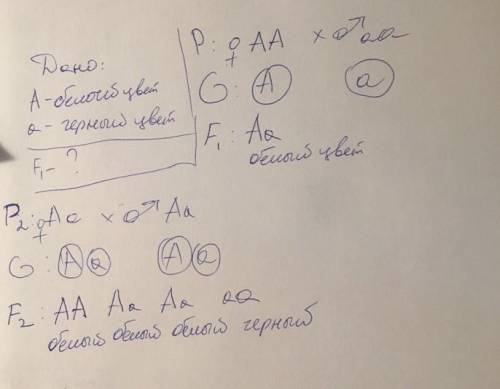 Дано:
А - белый цвет
а - черный цвет
F₁ - ?
P: ♀ AA × ♂ aa
G: A a
F₁: Aa
белый цвет
P₂: ♀ Aa × ♂ Aa
G: A a A a
F₂: AA Aa Aa aa
белый белый белый черный